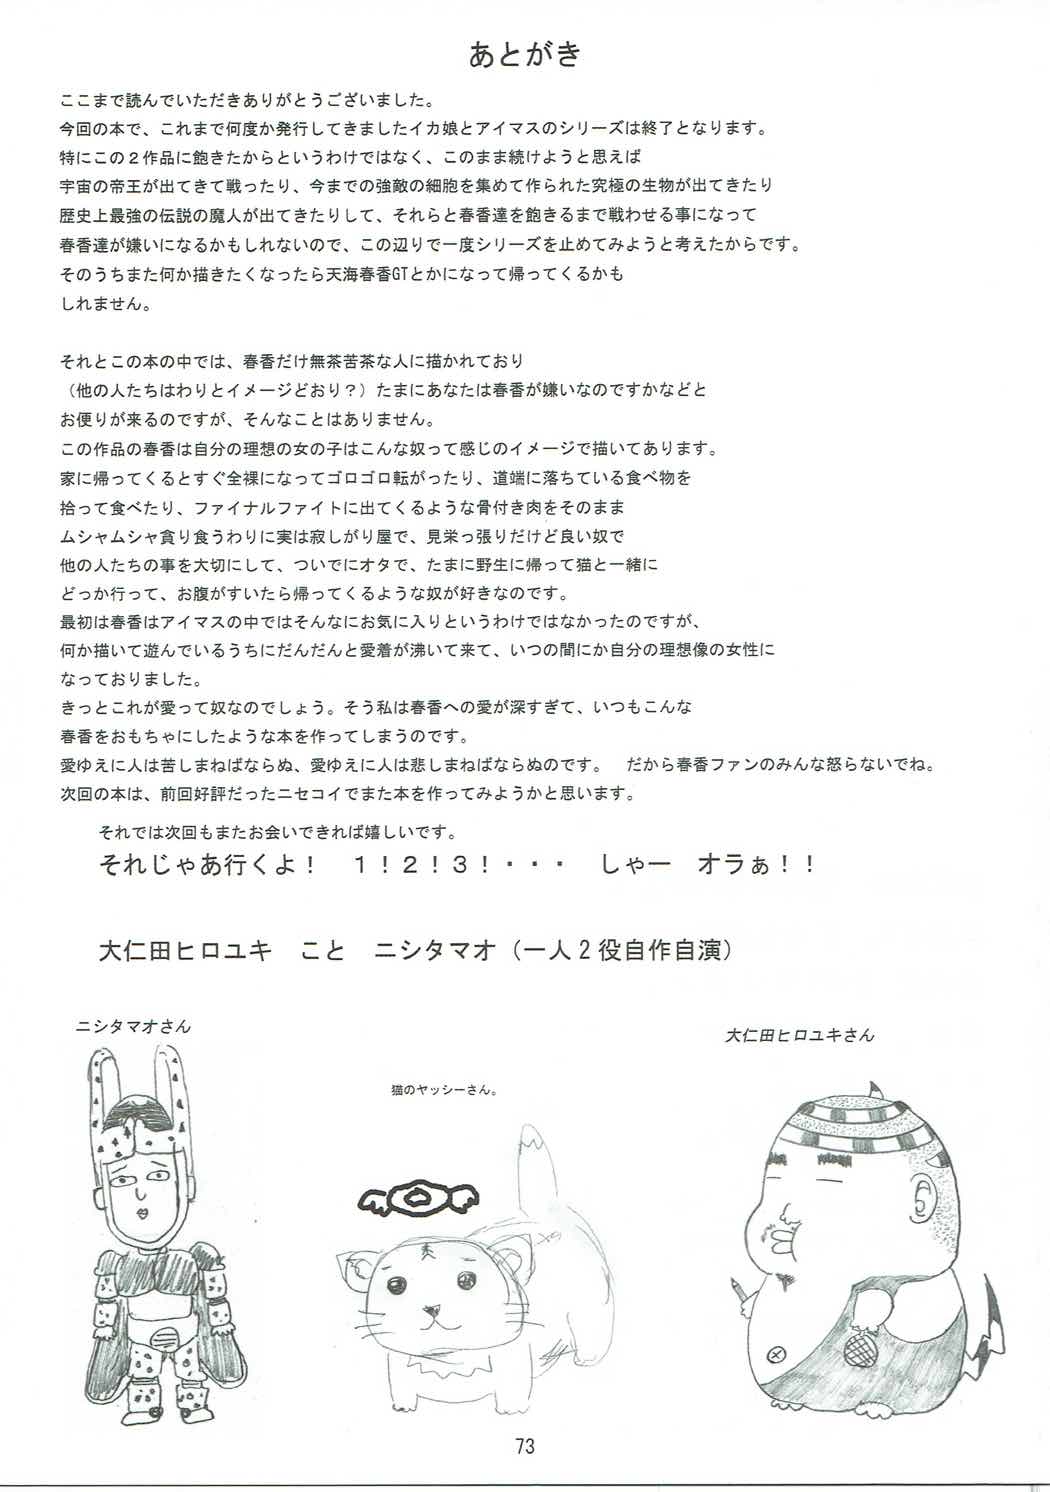 あとがき
ここまで読んでいただきありがとうございました。
今回の本で、これまで何度か発行してきましたイカ娘とアイマスのシリーズは終了となります。
特にこの２作品に飽きたからというわけではなく、このまま続けようと思えば
宇宙の帝王が出てきて戦ったり、今までの強敵の細胞を集めて作られた究極の生物が出てきたり
歴史上最強の伝説の魔人が出てきたりして、それらと春香達を飽きるまで戦わせる事になって
春香達が嫌いになるかもしれないので、この辺りで一度シリーズを止めてみようと考えたからです。
そのうちまた何か描きたくなったら天海春香GTとかになって帰ってくるかも
しれません。
それとこの本の中では、春香だけ無茶苦茶な人に描かれており
（他の人たちはわりとイメージどおり？）たまにあなたは春香が嫌いなのですかなどと
お便りが来るのですが、そんなことはありません。
この作品の春香は自分の理想の女の子はこんな奴って感じのイメージで描いてあります。
家に帰ってくるとすぐ全裸になってゴロゴロ転がったり、道端に落ちている食べ物を
拾って食べたり、ファイナルファイトに出てくるような骨付き肉をそのまま
ムシャムシャ貪り食うわりに実は寂しがり屋で、見栄っ張りだけど良い奴で
他の人たちの事を大切にして、ついでにオタで、たまに野生に帰って猫と一緒に
どっか行って、お腹がすいたら帰ってくるような奴が好きなのです。
最初は春香はアイマスの中ではそんなにお気に入りというわけではなかったのですが、
何か描いて遊んでいるうちにだんだんと愛着が沸いて来て、いつの間にか自分の理想像の女性に
なっておりました。
きっとこれが愛って奴なのでしょう。そう私は春香への愛が深すぎて、いつもこんな
春香をおもちゃにしたような本を作ってしまうのです。
愛ゆえに人は苦しまねばならぬ、愛ゆえに人は悲しまねばならぬのです。　だから春香ファンのみんな怒らないでね。
次回の本は、前回好評だったニセコイでまた本を作ってみようかと思います。
それでは次回もまたお会いできれば嬉しいです。
それじゃあ行くよ！　１！２！３！・・・　しゃー　オラぁ！！
大仁田ヒロユキ　こと　ニシタマオ（一人２役自作自演）
ニシタマオさん
大仁田ヒロユキさん
猫のヤッシーさん。
73